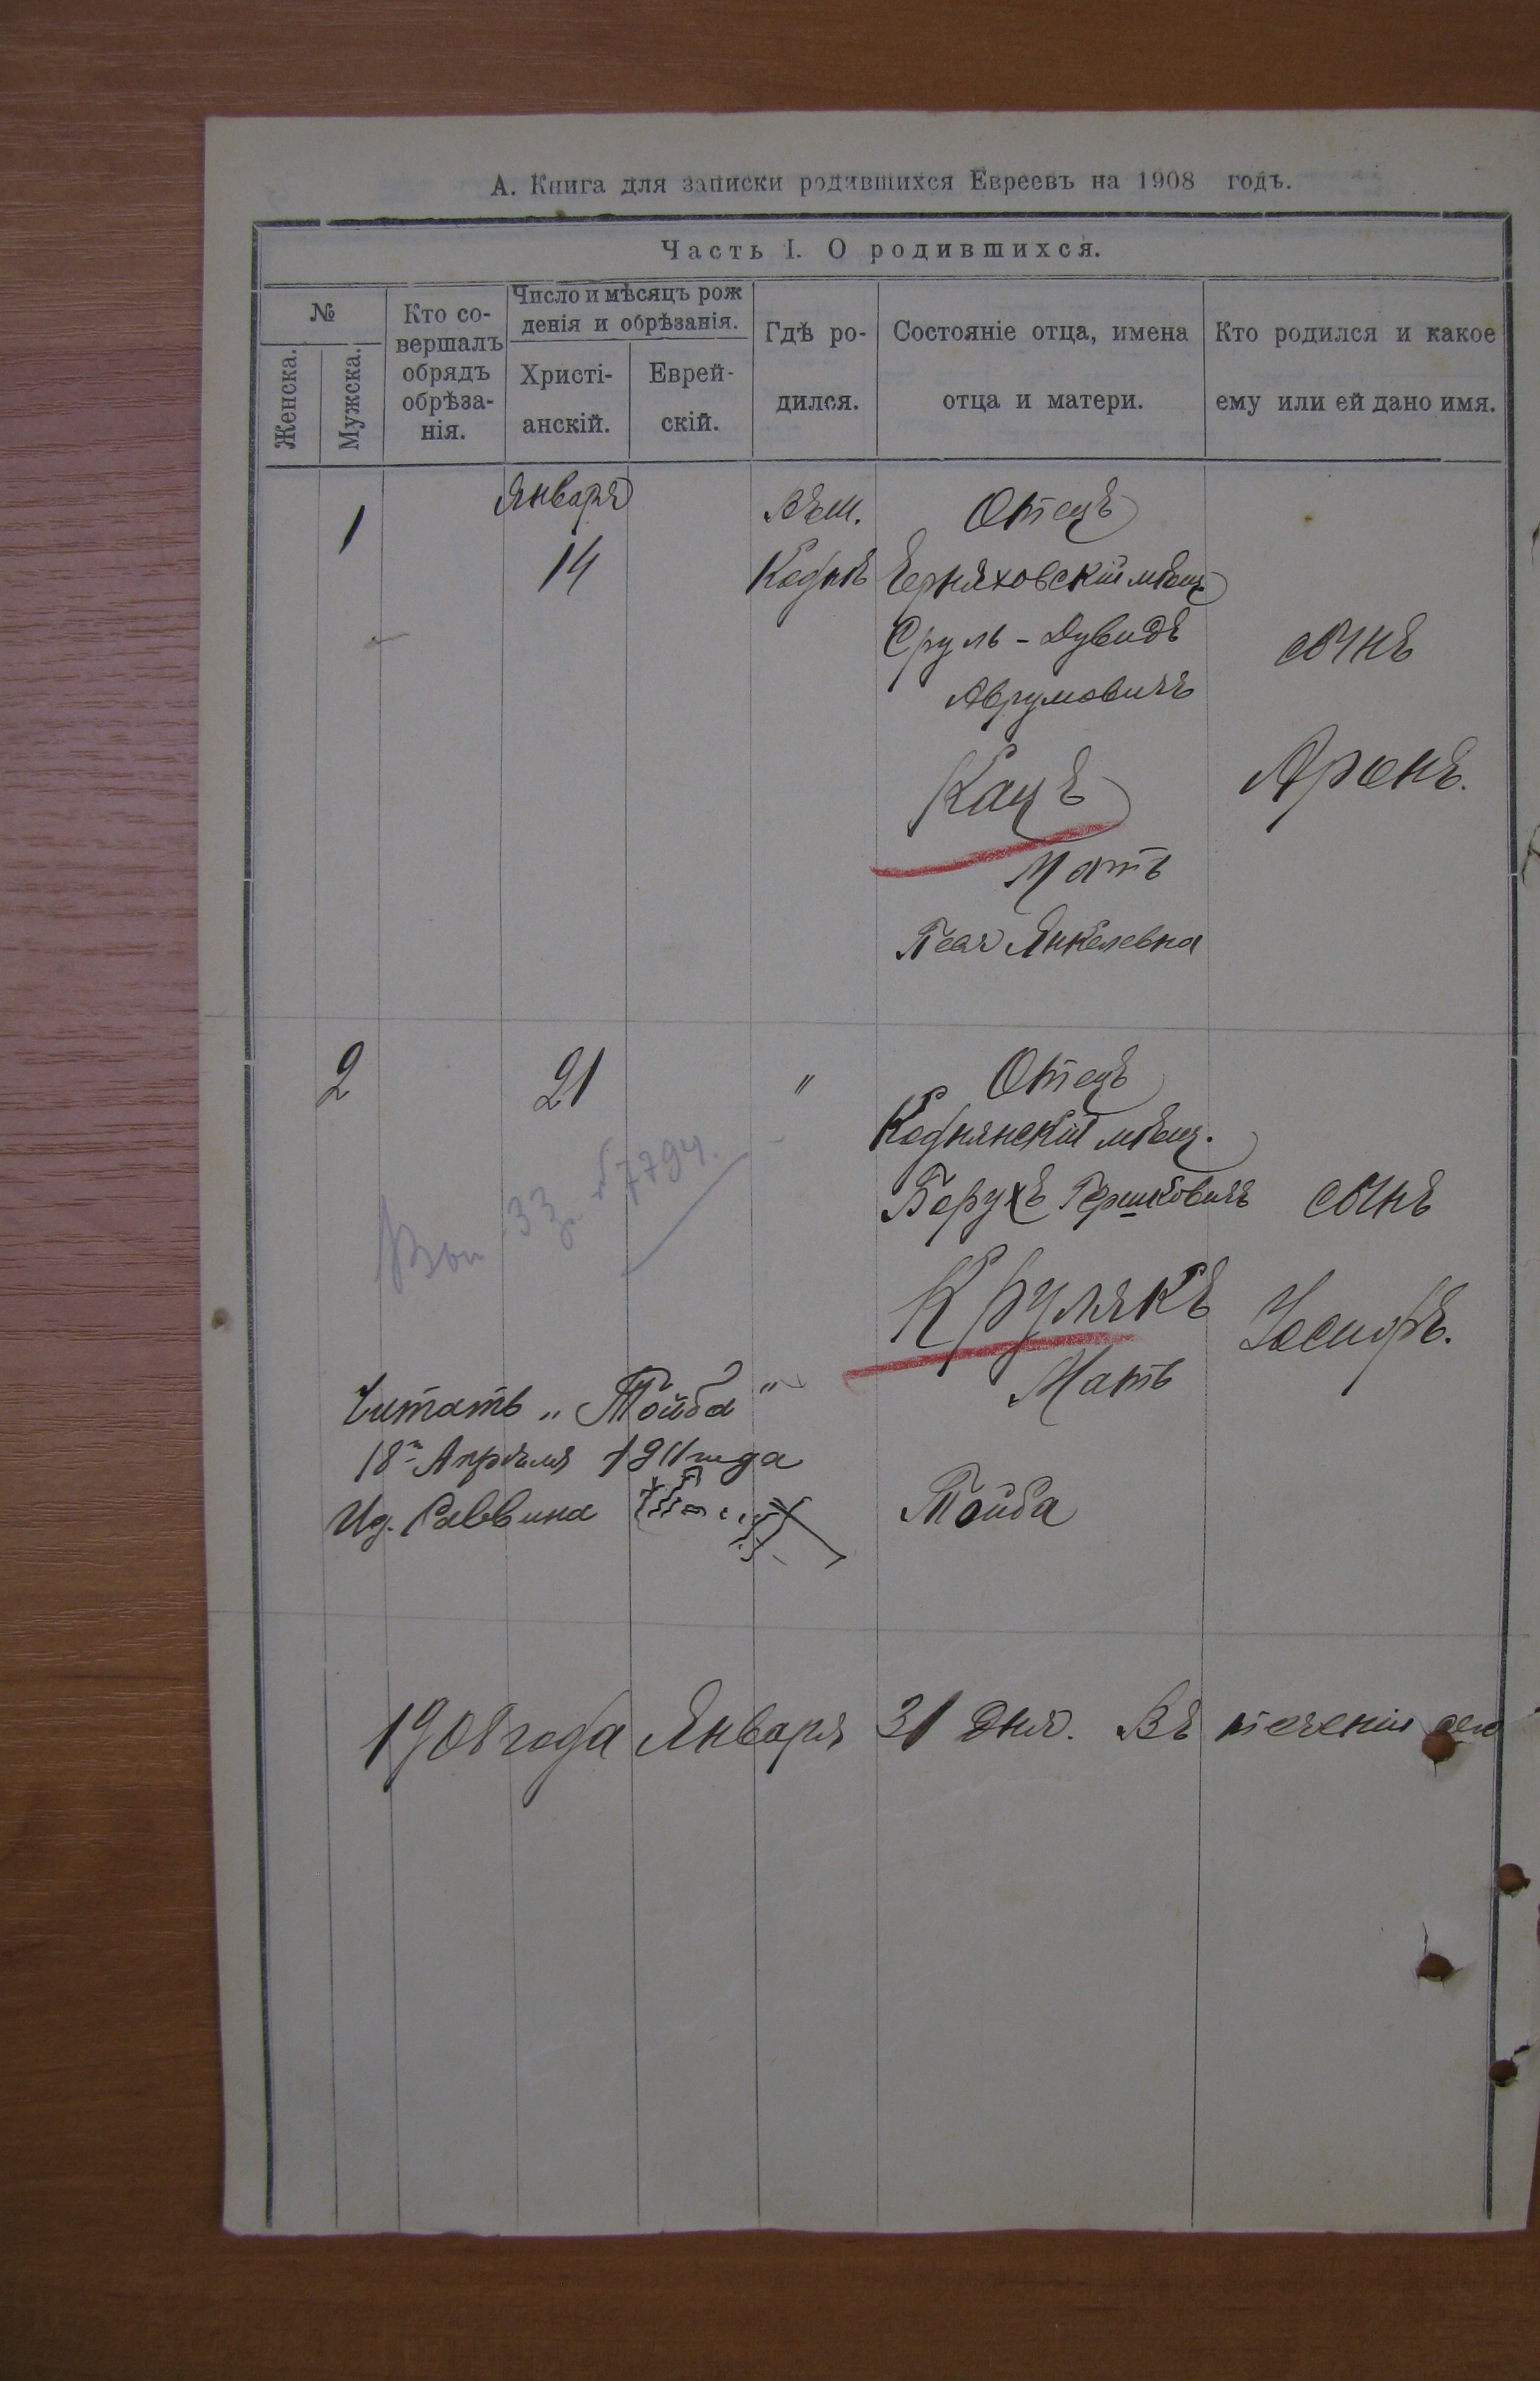 А. Книга для записки родившихся Евреевъ на 1908 годъ.
Часть I. О родившихся.
№
Женска.
Мужска.
Кто со-
вершалъ
обрядъ
обрѣза-
нія.
Число и мѣсяцъ рож
денія и обрѣзанія.
Христі-
анскій.
Еврей-
скій.
Гдѣ ро-
дился.
Состояніе отца, имена
отца и матери.
Кто родился и какое
ему или ей дано имя.
1
Января
14
Въ м.
Коднѣ
Отецъ
Черняховскій мѣщ.
Сруль-Дувидъ
Аврумовичъ
Кацъ
Мать
Песя Янкелевна
сынъ
Аронъ.
2
21
"
Отецъ
Коднянскій мѣщ.
Борухъ Гершковичъ
Крулякъ
Мать
Тойба
сынъ
Іосифъ.
№7794.
Читать „Тойба"
18 Апрѣля 1911 года
1908 года Января 31 дня. Въ теченіи сего